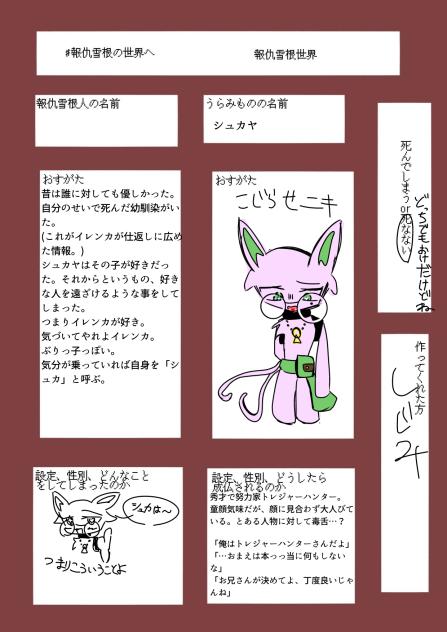 #報仇雪根の世界へ
報仇雪根世界
報仇雪根人の名前
うらみものの名前
シュカヤ
死んでしまうor死なない
どっちでもおけだけどね
おすがた
昔は誰に対しても優しかった。
自分のせいで死んだ幼馴染がい
た。
(これがイレンカが仕返しに広め
た情報。)
シュカヤはその子が好きだっ
た。それからというもの、好き
な人を遠ざけるような事をして
しまった。
つまりイレンカが好き。
気づいてやれよイレンカ。
ぶりっ子っぽい。
気分が乗っていれば自身を「シ
ュカ」と呼ぶ。
おすがた
こじらせニキ
作ってくれた方
しじみ
設定、性別、どんなこと
をしてしまったのか
シュカは〜
つまりこういうことよ
設定、性別、どうしたら
成仏されるのか
秀才で努力家トレジャーハンター。
童顔気味だが、顔に見合わず大人びて
いる。とある人物に対して毒舌…？
「俺はトレジャーハンターさんだよ」
「…おまえは本っっ当に何もしない
な」
「お兄さんが決めてよ、丁度良いじゃ
んね」